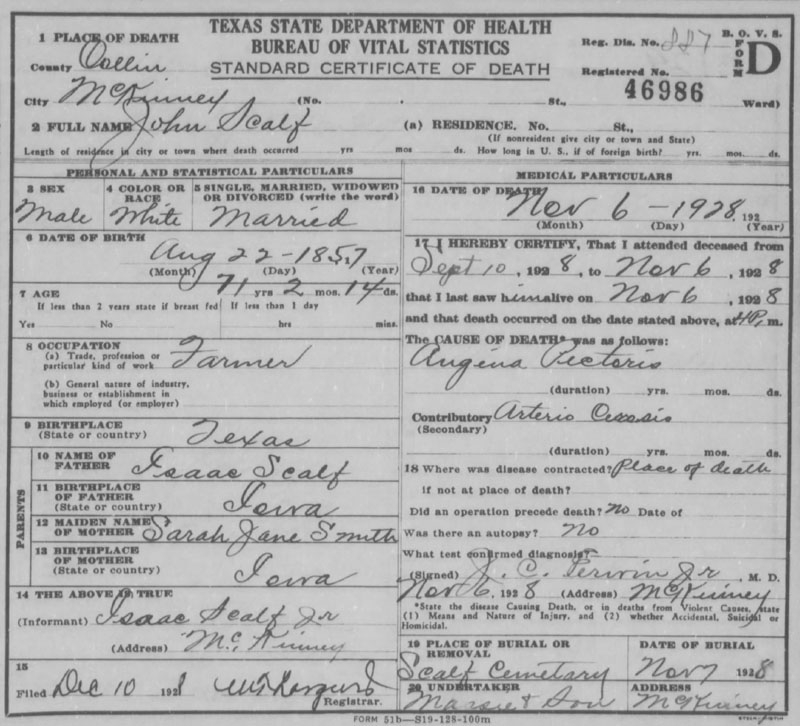 TEXAS STATE DEPARTMENT OF HEALTH
BUREAU OF VITAL STATISTICS
STANDARD CERTIFICATE OF DEATH
B. O. V. S.
FORM D
Reg. Dis. No. 227
Registered No. 46986
1 PLACE OF DEATH
County Collin
City McKinney (No. St., Ward)
2 FULL NAME John Scalf (a) RESIDENCE. No. St.,
(If nonresident give city or town and State)
Length of residence in city or town where death occurred yrs mos ds. How long in U. S., if of foreign birth? yrs. mos. ds.
PERSONAL AND STATISTICAL PARTICULARS
3 SEX
Male
4 COLOR OR RACE
White
5 SINGLE, MARRIED, WIDOWED
OR DIVORCED (write the word)
Married
6 DATE OF BIRTH
Aug 22-1857
(Month) (Day) (Year)
7 AGE 71 yrs 2 mos. 14 ds.
If less than 2 years state if breast fed If less than 1 day
Yes No hrs mins.
8 OCCUPATION
(a) Trade, profession or
particular kind of work Farmer
(b) General nature of industry,
business or establishment in
which employed (or employer)
9 BIRTHPLACE
(State or country) Texas
PARENTS
10 NAME OF
FATHER Isaac Scalf
11 BIRTHPLACE
OF FATHER
(State or country) Iowa
12 MAIDEN NAME
OF MOTHER Sarah Jane Smith
13 BIRTHPLACE
OF MOTHER
(State or country) Iowa
14 THE ABOVE IS TRUE
(Informant) Isaac Scalf Jr
(Address) McKinney
15
Filed Dec 10 192
Registrar.
MEDICAL PARTICULARS
16 DATE OF DEATH
Nov 6-1928 192
(Month) (Day) (Year)
17 I HEREBY CERTIFY, That I attended deceased from
Sept 10, 1928, to Nov 6, 1928
that I last saw him alive on Nov 6, 1928
and that death occurred on the date stated above, at 4P. m.
The CAUSE OF DEATH* was as follows:
Angina Pectoris
(duration) yrs. mos. ds.
Contributory Arterio
(Secondary)
(duration) yrs. mos. ds.
18 Where was disease contracted? Place of death
if not at place of death?
Did an operation precede death? No Date of
Was there an autopsy? No
What test confirmed diagnosis?
(Signed) J. C. Erwin Jr M. D.
Nov 6, 1928 (Address) McKinney
*State the disease Causing Death, or in deaths from Violent Causes, state
(1) Means and Nature of Injury, and (2) whether Accidental, Suicidal or
Homicidal.
19 PLACE OF BURIAL OR
REMOVAL
Scalf Cemetary
DATE OF BURIAL
Nov 7 1928
20 UNDERTAKER
Massie & Son
ADDRESS
McKinney
FORM 51b—S19-128-100m